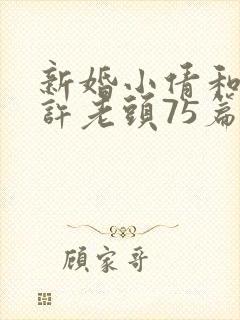 新婚小倩和
許老頭75篇
顾家哥